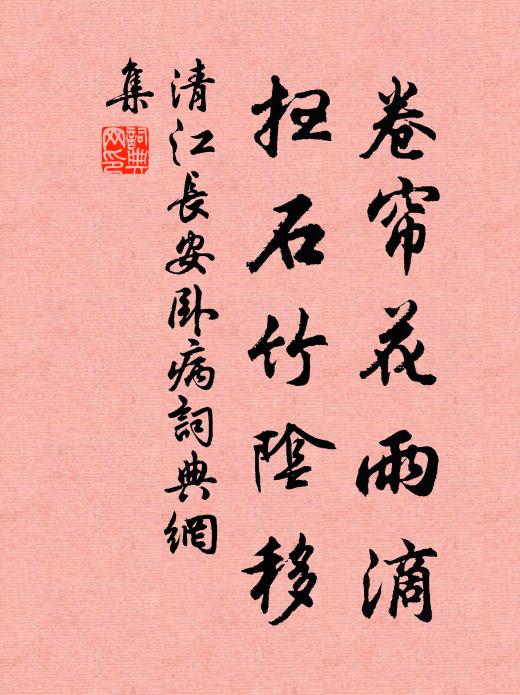 卷帘花雨滴
扫石竹陰移
清江長安卧病詞典網
集
詞典
网印